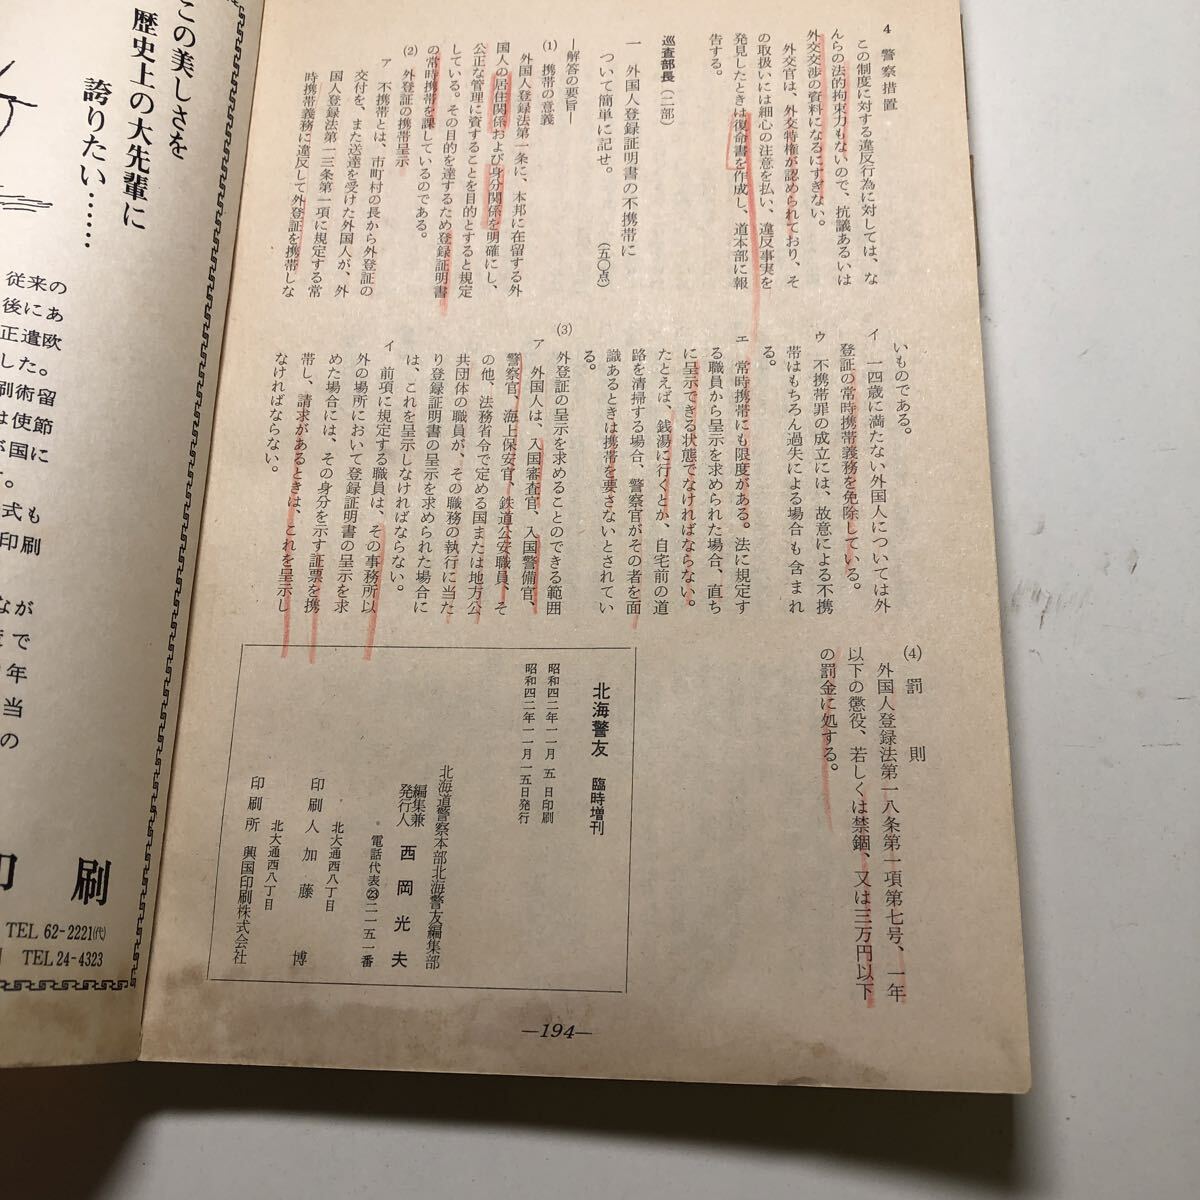 4 警察措置
この制度に対する違反行為に対しては、な
んらの法的拘束力もないので、抗議あるいは
外交交渉の資料になるにすぎない。
外交官は、外交特権が認められており、そ
の取扱いには細心の注意を払い、違反事実を
発見したときは復命書を作成し、道本部に報
告する。
巡査部長(二部)
一 外国人登録証明書の不携帯に
ついて簡単に記せ。 (五〇点)
―解答の要旨―
(1) 携帯の意義
外国人登録法第一条に、本邦に在留する外
国人の居住関係および身分関係を明確にし、
公正な管理に資することを目的とすると規定
している。その目的を達するため登録証明書
の常時携帯を課しているのである。
(2) 外登証の携帯呈示
ア 不携帯とは、市町村の長から外登証の
交付を、また送達を受けた外国人が、外
国人登録法第一三条第一項に規定する常
時携帯義務に違反して外登証を携帯しな
いものである。
イ 一四歳に満たない外国人については外
登証の常時携帯義務を免除している。
ゥ 不携帯罪の成立には、故意による不携
帯はもちろん過失による場合も含まれ
る。
エ 常時携帯にも限度がある。法に規定す
る職員から呈示を求められた場合、直ち
に呈示できる状態でなければならない。
たとえば、銭湯に行くとか、自宅前の道
路を清掃する場合、警察官がその者を面
識あるときは携帯を要さないとされてい
る。
(3) 外登証の呈示を求めることのできる範囲
ア 外国人は、入国審査官、入国警備官、
警察官、海上保安官、鉄道公安職員、そ
の他、法務省令で定める国または地方公
共団体の職員が、その職務の執行に当た
り登録証明書の呈示を求められた場合に
は、これを呈示しなければならない。
イ 前項に規定する職員は、その事務所以
外の場所において登録証明書の呈示を求
めた場合には、その身分を示す証票を携
帯し、請求があるときは、これを呈示し
なければならない。
(4) 罰則
外国人登録法第一八条第一項第七号、一年
以下の懲役、若しくは禁錮、又は三万円以下
の罰金に処する。
北海警友 臨時増刊
昭和四二年一一月 五日印刷
昭和四二年一一月一五日発行
北海道警察本部北海警友編集部
編集兼
発行人 西岡光夫
電話代表㉓二一五一番
北大通西八丁目
印刷人 加藤 博
北大通西八丁目
印刷所 興国印刷株式会社
―194―
この美しさを
歴史上の大先輩に
誇りたい……
従来の
後にあ
正遣欧
した。
刷術留
は使節
国に
式も
印刷
なが
で
年
当
の
刷
TEL 62-2221(代)
TEL 24-4323